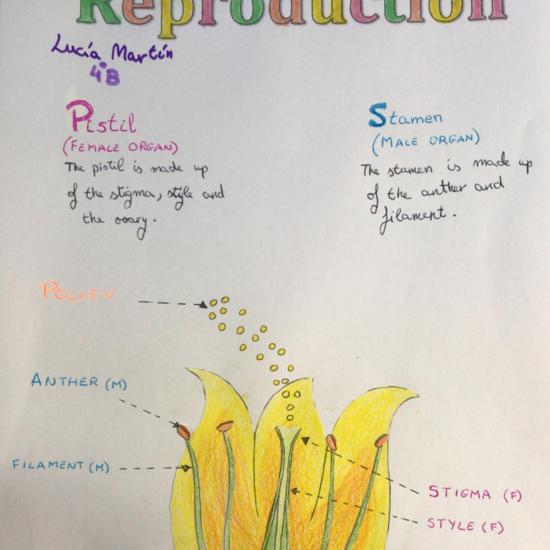 Reproduction
Lucía Martín
4ºB
Pistil
(FEMALE ORGAN)
The pistil is made up
of the stigma, style and
the ovary.
Stamen
(MALE ORGAN)
The stamen is made up
of the anther and
filament.
POLLEN
ANTHER (M)
FILAMENT (M)
STIGMA (F)
STYLE (F)